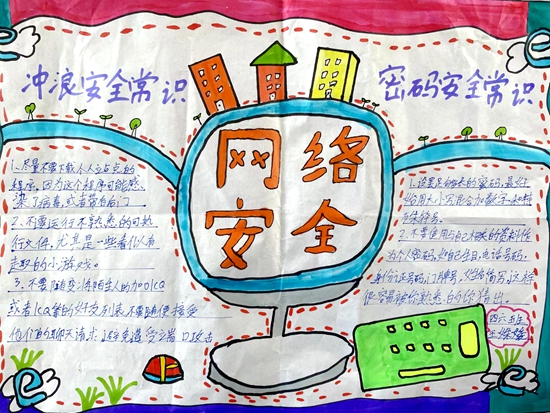 冲浪安全常识
1、尽量不要下载个人站点的
程序，因为这个程序可能感
染了病毒，或者带有后门
2、不要运行不熟悉的可执
行文件，尤其是一些看似有
趣的小游戏。
3、不要随意将陌生人的加
或者 等的好友列表，不要随便接受
他们的聊天请求，避免遭受端口攻击
网络
安全
密码安全常识
1、设置足够长的密码，最好
使用大小写混合加数字和特
殊符号
2、不要使用与自己相关的资料作
为个人密码，如自己生日，电话号码，
身份证号码，门牌号，这样
很容易被你熟悉的你猜出。
四六班